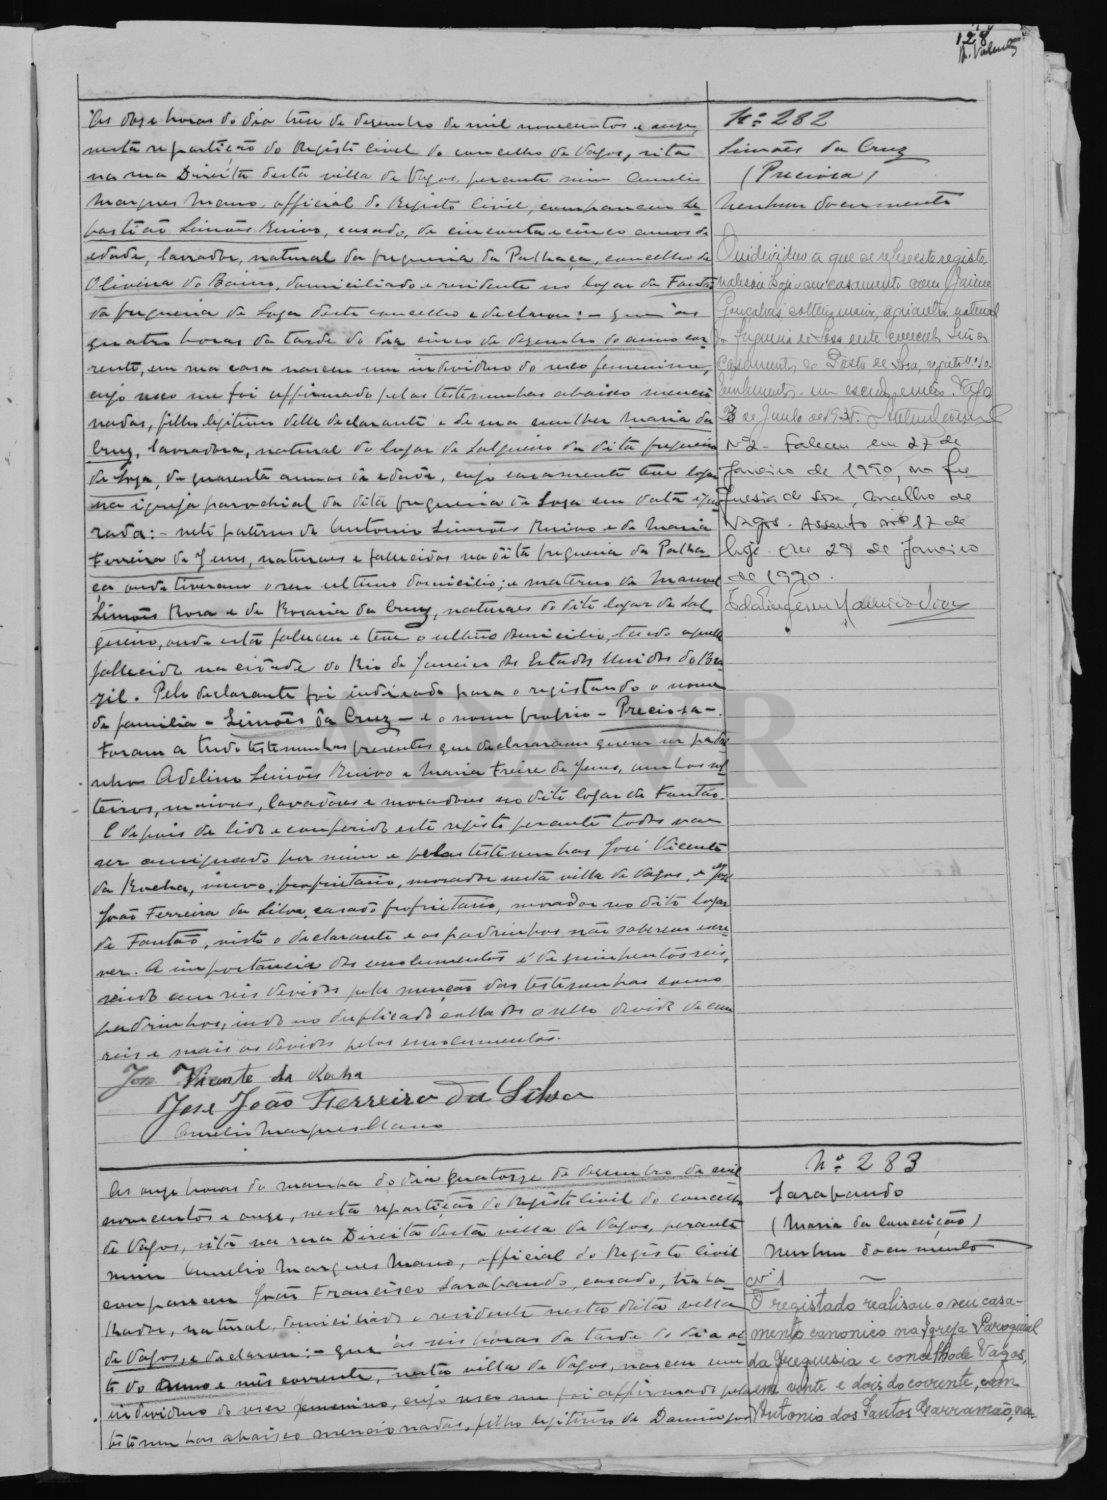 128
As doze horas do dia treze de dezembro de mil novecentos e onze,
nesta repartição do Registo Civil do concelho de Vagos, sita
na rua Direita desta villa de Vagos, perante mim Aurelio
Marques Mano, official do Registo Civil, compareceu Se-
bastião Simões Ruivo, casado, de cincoenta e cinco annos de
edade, lavrador, natural da freguezia da Palhaça, concelho de
Oliveira do Bairro, domiciliado e residente no logar de Fontão
da freguezia de Soza deste concelho e declarou: - que ás
quatro horas da tarde do dia cinco de dezembro do anno cor-
rente, em sua casa nasceu um individuo do sexo femenino,
cujo sexo me foi affirmado pelas testemunhas abaixo mencio-
nadas, filho legitimo delle declarante e de sua mulher Maria da
Cruz, lavradora, natural do logar de Salgueiro da dita freguezia
de Soza, de quarenta annos de edade, cujo casamento teve logar
na igreja parochial da dita freguezia de Soza em data igno-
rada: - neto paterno de Antonio Simões Ruivo e de Maria
Ferreira de Jesus, naturaes e fallecidos na dita freguezia da Palha-
ça onde tiveram o seu ultimo domicilio; e materno de Manuel
Simões Rosa e de Rosaria da Cruz, naturaes do dito logar de Sal-
gueiro, onde esta falleceu e teve o ultimo domicilio, tendo aquelle
fallecido na cidade do Rio de Janeiro dos Estados Unidos do Bra-
zil. Pelo declarante foi indicado para o registando o nome
de familia - Simões da Cruz - e o nome proprio - Preciosa -.
Foram a tudo testemunhas presentes que declararam querer ser padri-
nhos Adelino Simões Ruivo e Maria Freire de Jesus, ambos sol-
teiros, maiores, lavradores e moradores no dito logar de Fontão.
E depois de lido e conferido este registo perante todos vae
ser assignado por mim e pelas testemunhas José Vicente
da Rocha, viuvo, proprietario, morador nesta villa de Vagos, e José
João Ferreira da Silva, casado proprietario, morador no dito logar
de Fontão, visto o declarante e os padrinhos não saberem escre-
ver. A importancia dos emolumentos é de quinhentos reis,
sendo cem reis devidos pela menção das testemunhas como
padrinhos, indo no duplicado collados o sello devido de cem
reis e mais os devidos pelos emolumentos.
José Vicente da Rocha
Jose João Ferreira da Silva
Aurelio Marques Mano
Nº 282
Simões da Cruz
(Preciosa)
Nenhum documento
O individuo a que se refere este registo
realisou hoje o seu casamento com Jaime
Gonçalves solteiro, maior, agricultor, natural
da freguesia de Soza deste concelho
casamentos do Posto de Soza, registo nº 10.
de Junho de 1935.
Nº 2 - Faleceu em 27 de
Janeiro de 1990, na fre-
guesia de Sosa, Concelho de
Vagos. Assento nº 17 de
hoje. Em 29 de Janeiro
de 1990.
As onze horas da manha do dia quatorze de dezembro de mil
novecentos e onze, nesta repartição do Registo Civil do concelho
de Vagos, sita na rua Direita desta villa de Vagos, perante
mim Aurelio Marques Mano, official do Registo Civil
compareceu João Francisco Sarabando, casado, traba-
lhador, natural, domiciliado e residente nesta dita villa
de Vagos, e declarou: - que ás seis horas da tarde do dia oi-
to do anno e mês corrente, nesta villa de Vagos, nasceu um
individuo do sexo femenino, cujo sexo me foi affirmado pelas
testemunhas abaixo mencionadas, filho legitimo de Domingos
Nº 283
Sarabando
(Maria da Conceição)
Nenhum documento
Nº 1
O registado realisou o seu casa-
mento canonico na Igreja Paroquial
da freguesia e concelho de Vagos,
em vinte e dois do corrente, com
Antonio dos Santos Carramão, na-
ADAVR